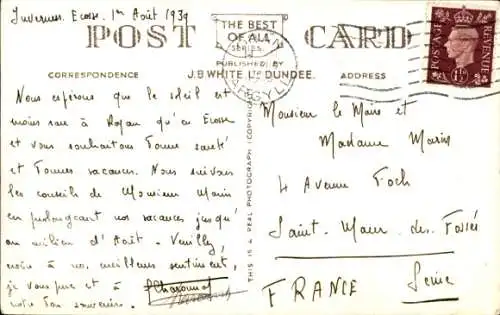 Inverness. Ecosse. 1er Août 1939
POST CARD
THE BEST
OF ALL
SERIES.
PUBLISHED BY
J.B. WHITE LTD DUNDEE.
CORRESPONDENCE
ADDRESS
Nous espérons que le soleil est
moins rare à Royan qu'en Ecosse
et vous souhaitons bonne santé
et bonnes vacances. Nous suivons
les conseils de Monsieur Marin
en prolongeant nos vacances jusqu'
au milieu d'Août. Veuillez,
croire à nos meilleurs sentiments,
je vous prie et à
notre bon souvenir.
THIS IS A REAL PHOTOGRAPH (COPYRIGHT
ARGYLL
POSTAGE
REVENUE
1½D
Monsieur le Maire et
Madame Marin
4 Avenue Foch
Saint-Maur-des-Fossés
Seine
FRANCE